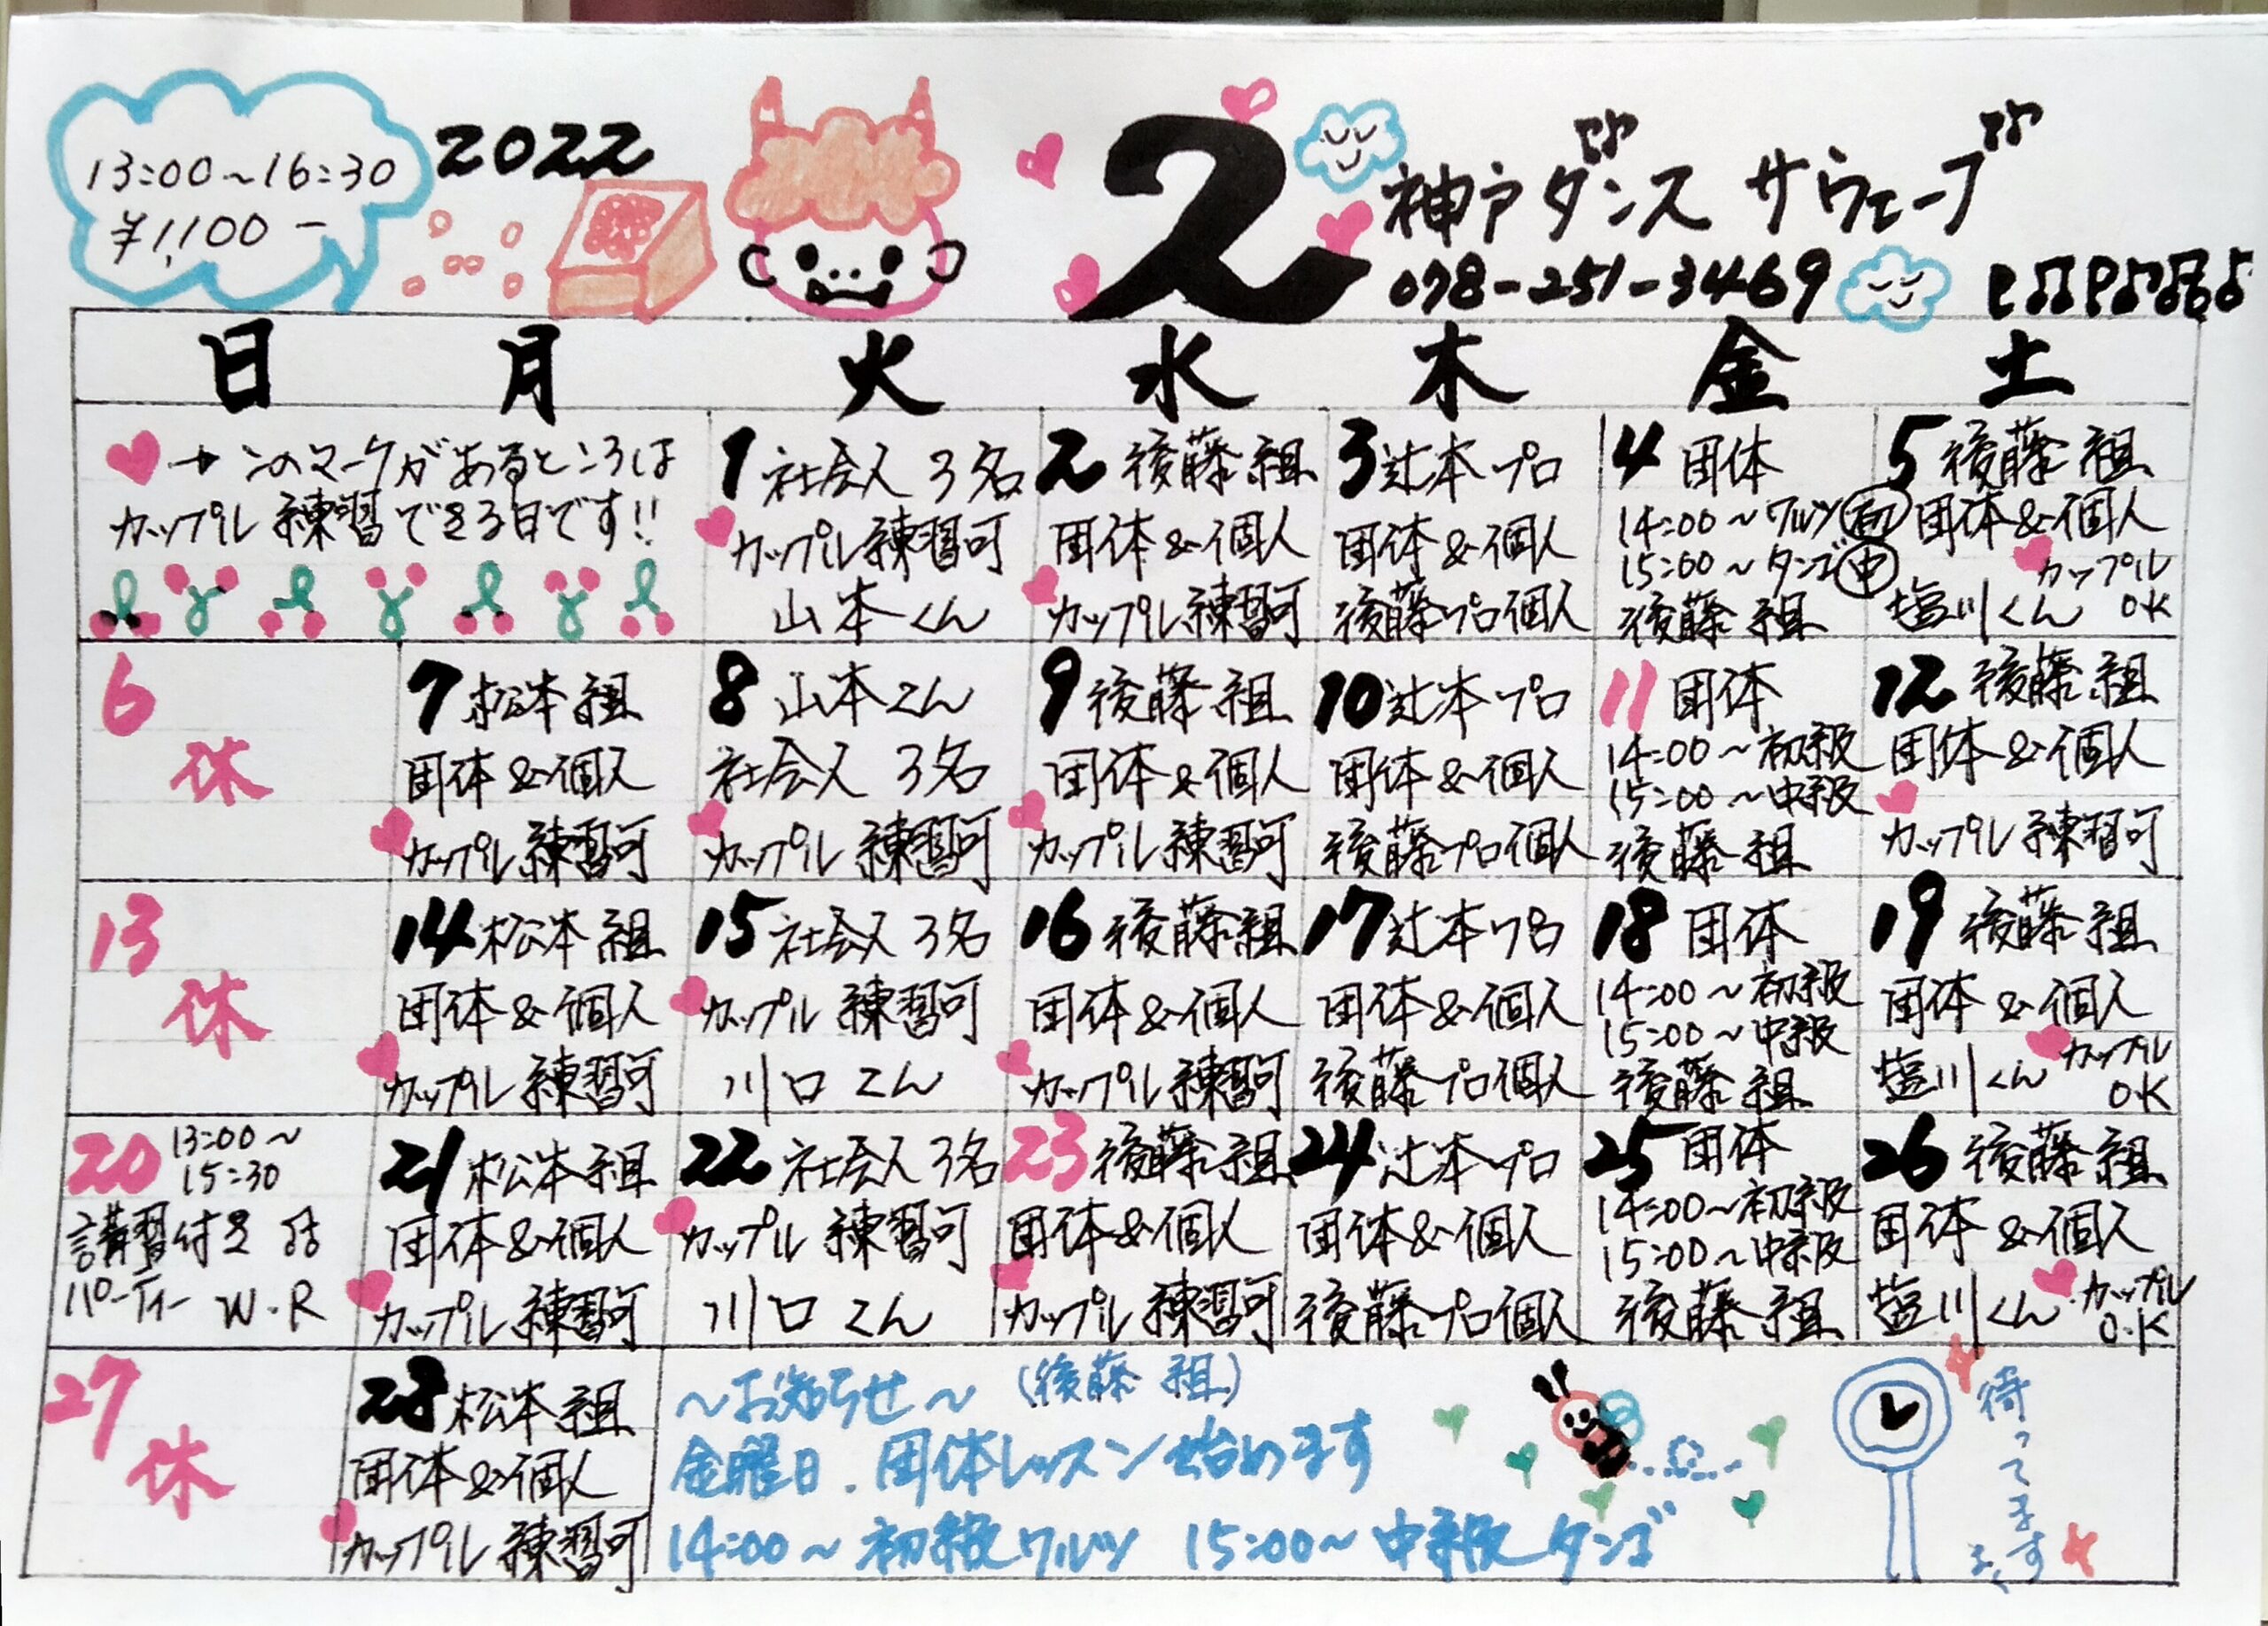 13:00～16:30
¥1,100－
2022
2
神戸ダンス サウェーブ
078-251-3469
日 月 火 水 木 金 土
→このマークがあるところは
カップル練習できる日です!!
1 社会人 3名
カップル練習可
山本くん
2 後藤組
団体&個人
カップル練習可
3 辻本プロ
団体&個人
後藤プロ個人
4 団体
14:00～ワルツ初
15:00～タンゴ中
後藤組
5 後藤組
団体&個人
カップル
塩川くん OK
6
休
7 松本組
団体&個人
カップル練習可
8 山本くん
社会人 3名
カップル練習可
9 後藤組
団体&個人
カップル練習可
10 辻本プロ
団体&個人
後藤プロ個人
11 団体
14:00～初級
15:00～中級
後藤組
12 後藤組
団体&個人
カップル練習可
13
休
14 松本組
団体&個人
カップル練習可
15 社会人 3名
カップル練習可
川口くん
16 後藤組
団体&個人
カップル練習可
17 辻本プロ
団体&個人
後藤プロ個人
18 団体
14:00～初級
15:00～中級
後藤組
19 後藤組
団体&個人
塩川くん カップル
OK
20 13:00～
15:30
講習付き
パーティー W.R
21 松本組
団体&個人
カップル練習可
22 社会人 3名
カップル練習可
川口くん
23 後藤組
団体&個人
カップル練習可
24 辻本プロ
団体&個人
後藤プロ個人
25 団体
14:00～初級
15:00～中級
後藤組
26 後藤組
団体&個人
塩川くん カップル
O.K
27
休
28 松本組
団体&個人
カップル練習可
～お知らせ～ (後藤組)
金曜日.団体レッスン始めます
14:00～初級ワルツ 15:00～中級タンゴ
待ってます